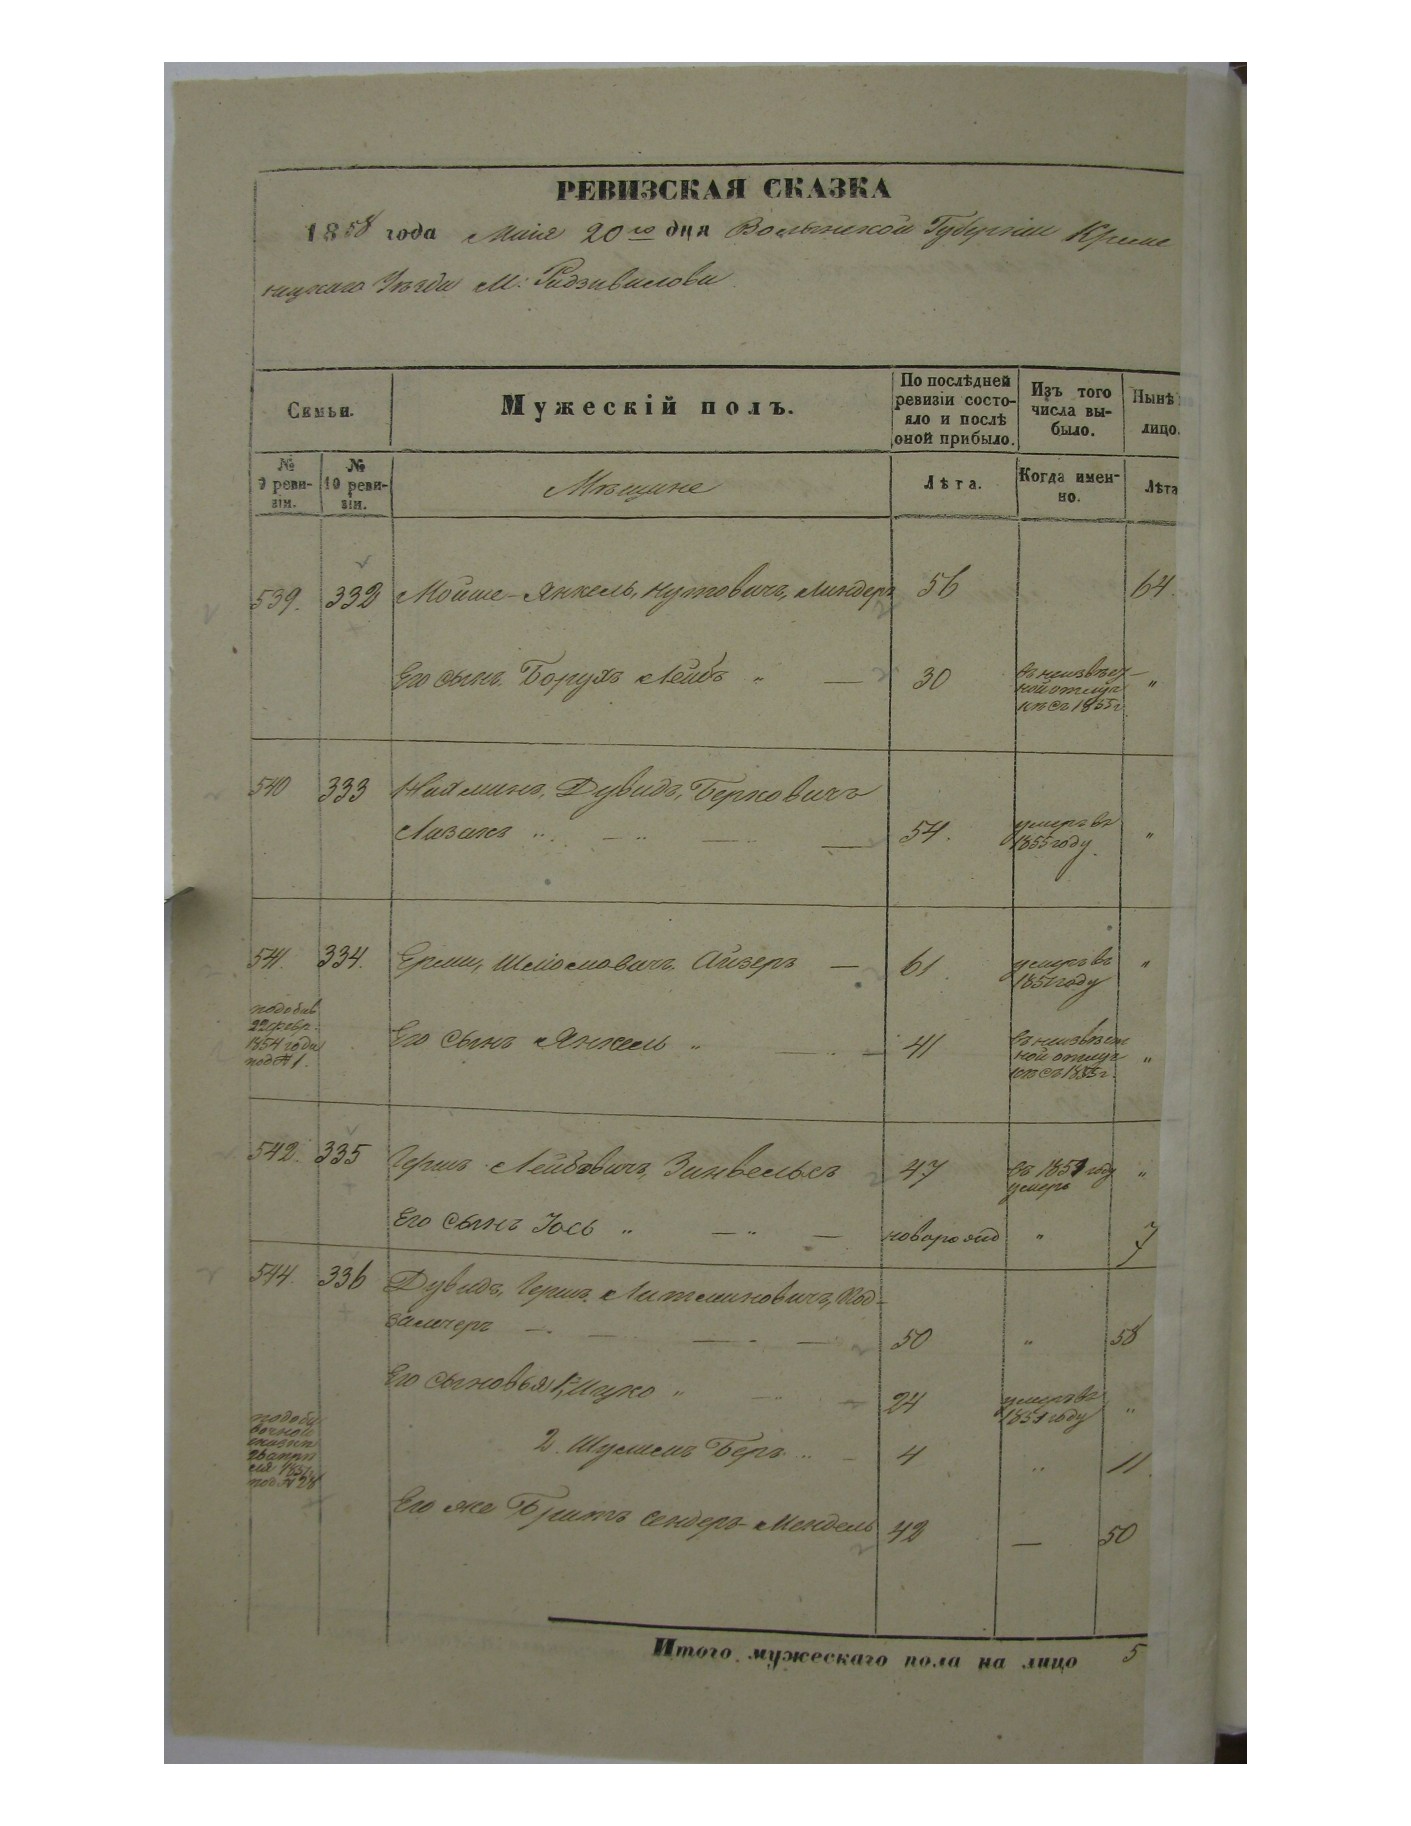 РЕВИЗСКАЯ СКАЗКА
1858 года Маія 20го дня Волынской Губерніи Креме
нецкаго Уѣзда М: Радзивилова
Семьи.
Мужескій полъ.
По послѣдней
ревизіи состо-
яло и послѣ
оной прибыло.
Изъ того
числа вы-
было.
Нынѣ
лицо.
№
9 реви-
зіи.
№
10 реви-
зіи.
Мѣщане
Лѣта.
Когда имен-
но.
Лѣта
539. 332 Мойше-Янкель, Нутовичъ, Линдеръ 56 64.
Его сынъ Борухъ Лейбъ " — 30 въ неизвѣст-
ной отлуч
кѣ съ 1855 г. "
540 333 Дувидъ, Берковичъ
54. умеръ въ
1855 году. "
541. 334. Шліомовичъ Айзеръ — 61. умеръ въ
году "
22 февр.
1854 года
под № 1.
Его сынъ Янкель " — 41 въ неизвѣст
ной отлуч
кѣ съ 1855 г. "
542. 335 Гершъ Лейбовичъ, Зинвельсъ 47 въ году
умеръ "
Его сынъ Іось " — " — новорожд " 7
544. 336 Дувидъ, Гершъ Литмановичъ, Под-
замчеръ — 50 " 58
Его сыновья 1й, Ицко " — 24 умеръ въ
году "
2. Шулимъ Беръ " — 4 " 11.
под № 28
Его же Братъ Сендеръ-Мендель 42 — 50
Итого мужескаго пола на лицо 5